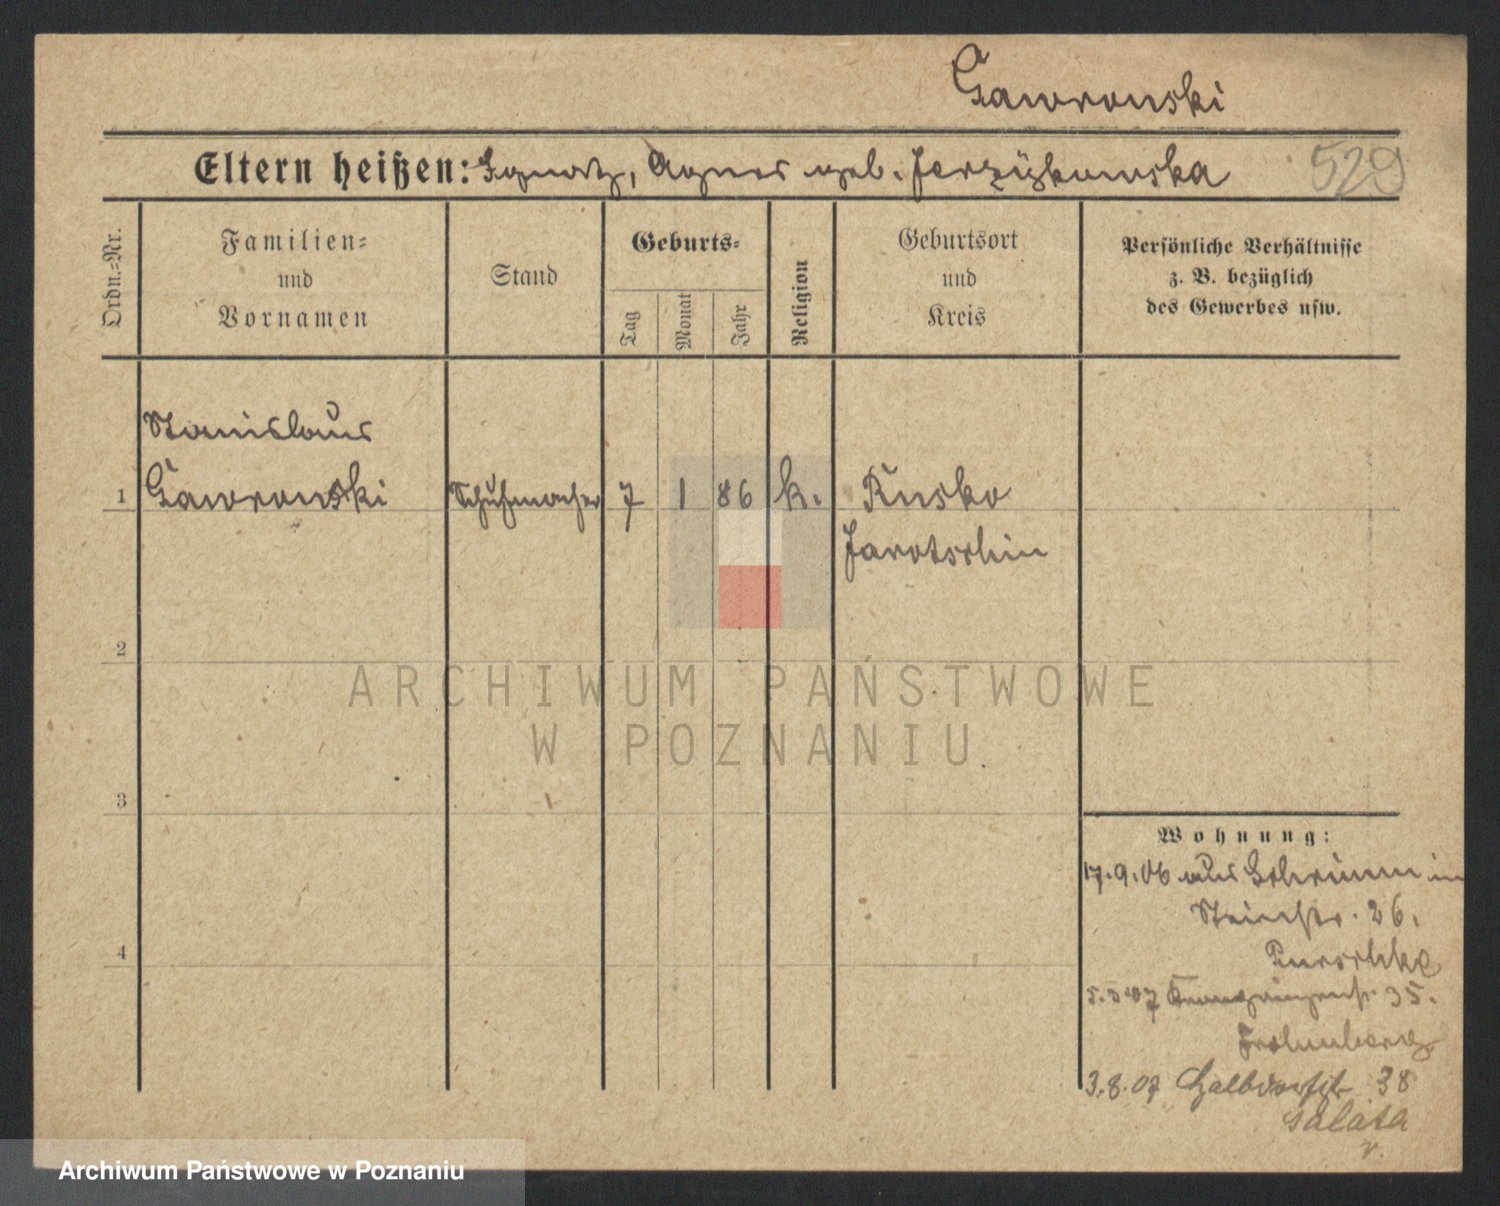 Gawronski
Eltern heißen: Ignatz, Agnes geb. Jerzÿkowska
529
Ordn.=Nr.
Familien=
und
Vornamen
Stand
Geburts=
Tag
Monat
Jahr
Religion
Geburtsort
und
Kreis
Persönliche Verhältnisse
z. B. bezüglich
des Gewerbes usw.
Stanislaus
1 Gawronski Schuhmacher 7 1 86 k. Rusko
Jarotschin
2
ARCHIWUM PAŃSTWOWE
W POZNANIU
3
Wohnung:
17.9.06 aus Schrimm in
Steinstr. 26.
4
5.3.07 35.
Frohnberg
3.8.07 Halbdorfst 38
Salata
v.
Archiwum Państwowe w Poznaniu